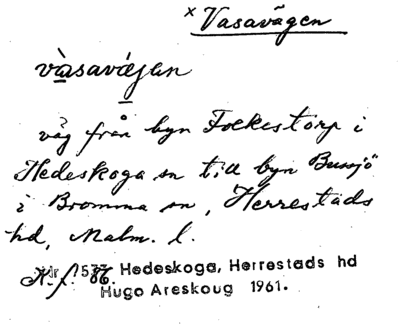 × Vasavägen
vàsavä̀gen
väg från byn Folkestorp i
Hedeskoga sn till byn Bussjö
i Bromma sn, Herrestads
hd, Malm. l.
Hedeskoga, Herrestads hd
Hugo Areskoug 1961.